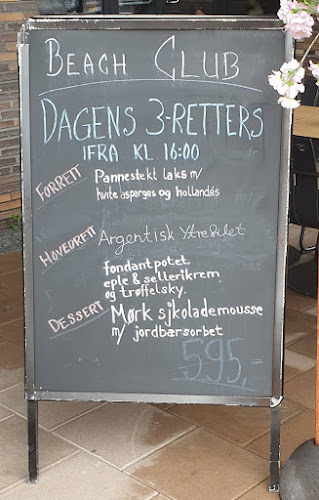 BEACH CLUB
DAGENS 3-RETTERS
IFRA KL 16:00
FORRETT Pannestekt laks m/
hvite asparges og hollandés
HOVEDRETT Argentisk Ytrefilet
fondantpotet.
eple & sellerikrem
og trøffelsky.
DESSERT Mørk sjkolademousse
m/ jordbærsorbet
595,-